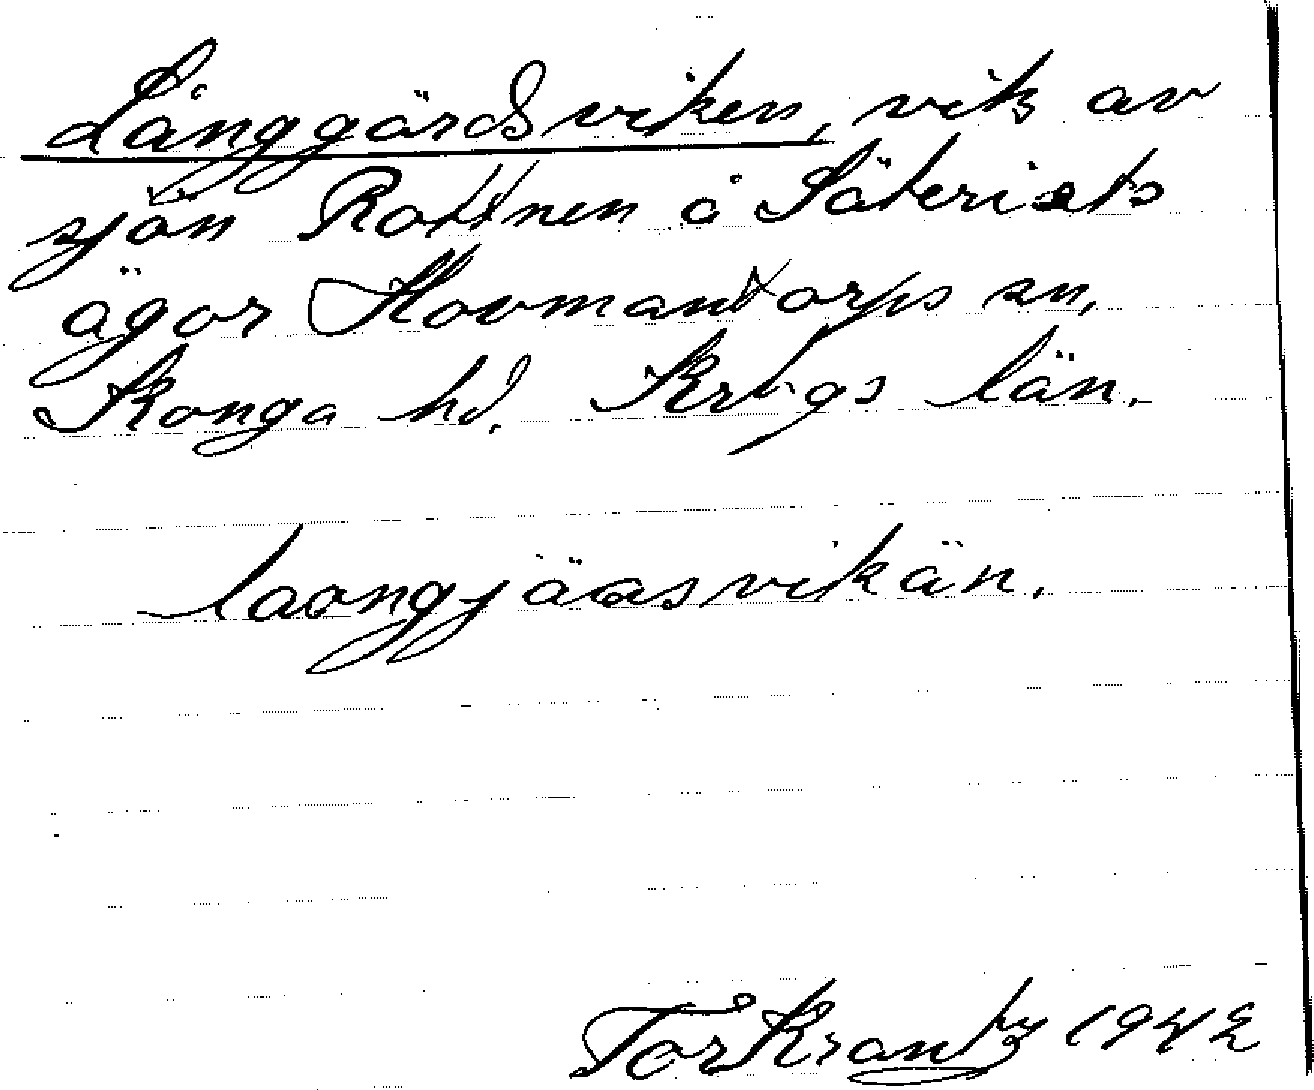 Långgärdsviken, vik av
sjön Rottnen å Säteriets
ägor Hovmantorps sn,
Konga hd. Krbgs län.
laongjääsvikän.
Tor Krantz 1942